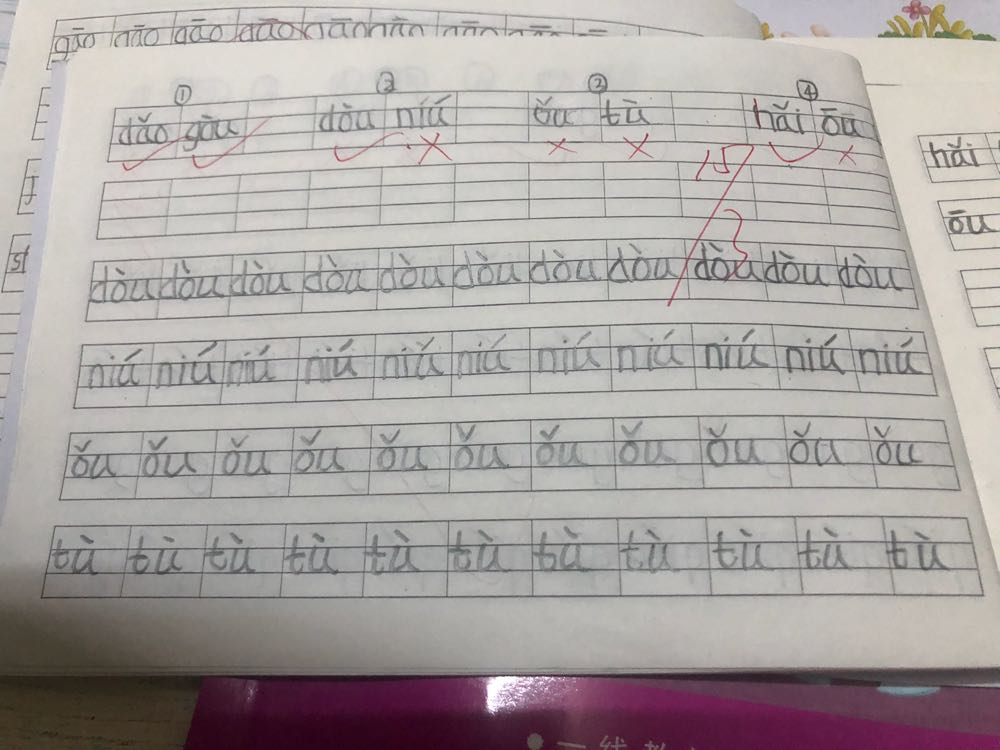 gāo gāo gāo gāo gāo gāo
① ② ③ ④
dǎo gòu dòu niú ǒu tù hǎi ōu
15
3
dòu dòu dòu dòu dòu dòu dòu dòu dòu dòu dòu
niú niú niú niú niú niú niú niú niú niú niú
ǒu ǒu ǒu ǒu ǒu ǒu ǒu ǒu ǒu ǒu ǒu
tù tù tù tù tù tù tù tù tù tù tù
hǎi
ōu